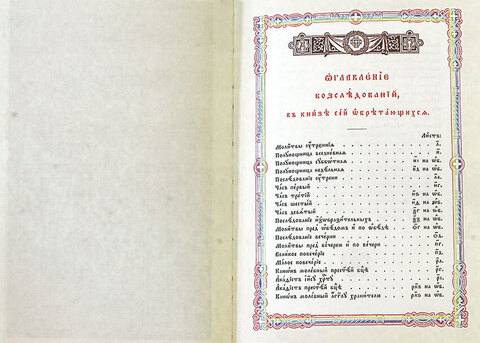 Ѡглавле́нїе
возслѣ́дованїй,
въ кни́зѣ се́й ѡ҆брѣта́ющихсѧ.
Ли́стъ:
Моли̑твы ᲂу҆́трєннїѧ
Полꙋ́нощница вседне́внаѧ
Полꙋ́нощница сꙋббѡ́тнаѧ на ѡ҆б.
Полꙋ́нощница недѣ́льнаѧ на ѡ҆б.
Послѣ́дованїе ᲂу҆́трени
Ча́съ пе́рвый
Ча́съ тре́тїй на ѡ҆б.
Ча́съ шесты́й на ѡ҆б.
Ча́съ девѧ́тый на ѡ҆б.
Послѣ́дованїе и҆з̾ѡбрази́тельныхъ на ѡ҆б.
Моли̑твы пред̾ ѡ҆бѣ́домъ и҆ по ѡ҆бѣ́дѣ на ѡ҆б.
Послѣ́дованїе вече́рни
Моли̑твы пред̾ ве́черею и҆ по ве́чери
Вели́кое повече́рїе
Ма́лое повече́рїе
Канѡ́нъ моле́бный прест҃ѣ́й бц҃ѣ
А҆ка́ѳїстъ і҆и҃сꙋ хрⷭ҇тꙋ̀
А҆ка́ѳїстъ прест҃ѣ́й бц҃ѣ на ѡ҆б.
Канѡ́нъ моле́бный а҆́гг҃лꙋ храни́телю на ѡ҆б.